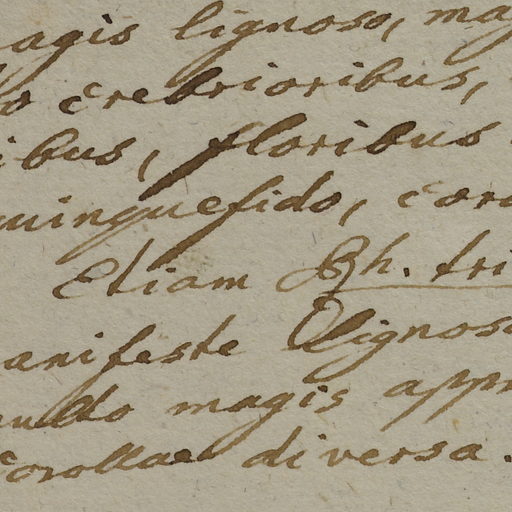 agis lignoso, mag
o crebrioribus,
ibus, floribus
quinquefido, coro
Etiam Rh. tri
anifeste lignoso
do magis appr
Corollae diversa.